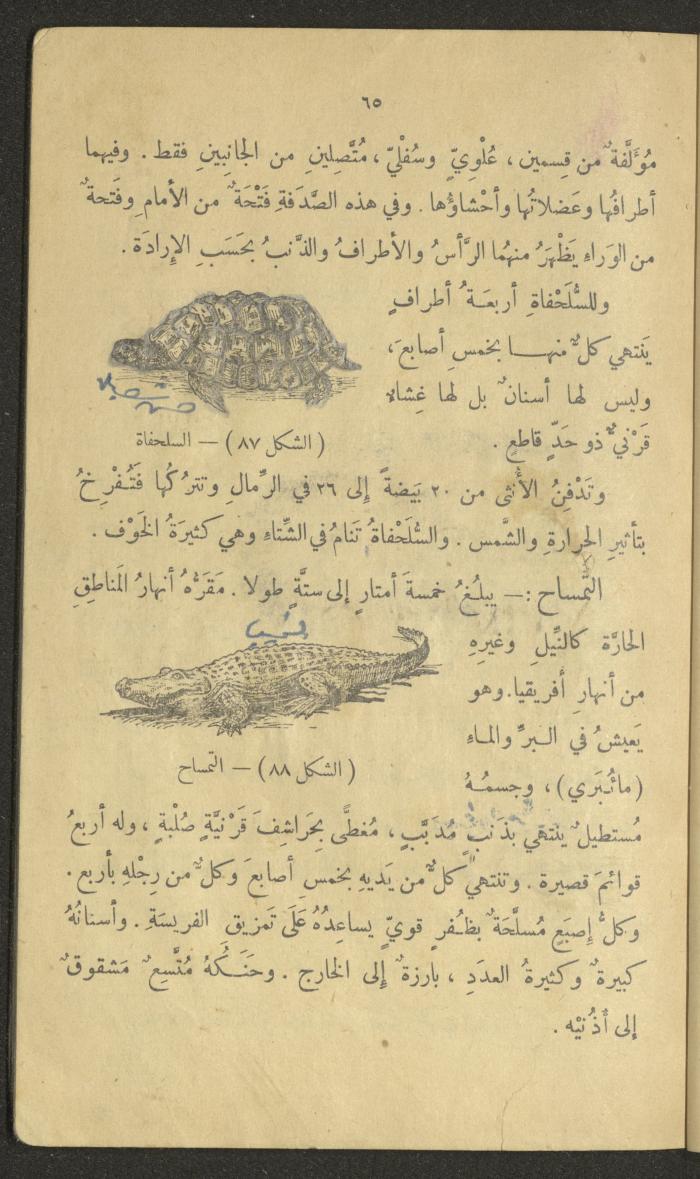 ٦٥
مُؤَلَّفة ٌ من قِسمين ، عُلْوِيّ وسُفْليّ ، مُتَّصِلينِ من الجانِبينِ فقط . وفيهما
أطرافُها وعَضلاتُها وأحْشاؤُها . وفي هذه الصَّدَفةِ فَتْحَة ٌ من الأمام وفَتحة ٌ
من الوَراءِ يَظْهَرُ منهُما الرَّأسُ والأطرافُ والذَّنبُ بحَسَبِ الإرادَة .
وللسُّلَحْفاةِ أربعَة ُ أطرافٍ
يَنتهي كلٌّ منهـا بخمسِ أصابعَ ،
وليس لها أسنانٌ بل لها غِشاءٌ
قَرْنيٌّ ذو حَدٍّ قاطعٍ .
(الشكل ٨٧) — السلحفاة
وتَدْفِنُ الأُنثى من ٢٠ بَيضةً إلى ٢٦ في الرِّمالِ وتترُكُها فَتُفْرِخُ
بتأثيرِ الحرارةِ والشَّمس . والسُّلَحْفاةُ تَنامُ في الشِّتاءِ وهي كثيرَةُ الخَوْف .
التِّمساح :— يبلُغُ خمسةَ أمتارٍ إلى ستَّةٍ طولا . مَقَرُّهُ أنهارُ المَناطِقِ
الحارَّة كالنِّيلِ وغيرِهِ
من أنهارِ أفريقيا . وهو
يَعيشُ في البرِّ والماءِ
(مائبَري) ، وجسمُهُ
(الشكل ٨٨) — التمساح
مُستطيلٌ ينتهي بذَنبٍ مُدَبَّبٍ ، مُغطَّى بحَراشِفَ قَرْنيَّةٍ صُلْبةٍ ، وله أربعُ
قوائمَ قصيرة . وتنتهي كلٌّ من يَديهِ بخمسِ أصابعَ وكلٌّ من رِجْلهِ بأربع .
وكلُّ إصبَعٍ مُسلَّحَة ٌ بظُفرٍ قويٍّ يساعِدُهُ عَلَى تَمزيقِ الفريسَةِ . وأسنانُهُ
كبيرة ٌ وكثيرةُ العدَدِ ، بارزة ٌ إلى الخارج . وحَنَكُهُ مُتَّسِعٌ مَشقوقٌ
إلى أُذُنيْه .